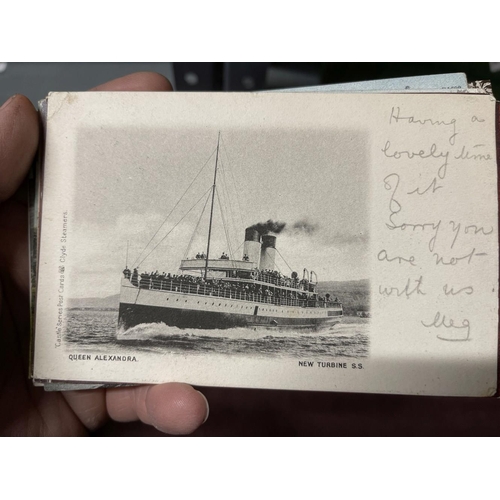 Having a
lovely time
of it
Sorry you
are not
with us
Meg
QUEEN ALEXANDRA.
NEW TURBINE S.S.
"Caledonia" Series Post Cards of Clyde Steamers.